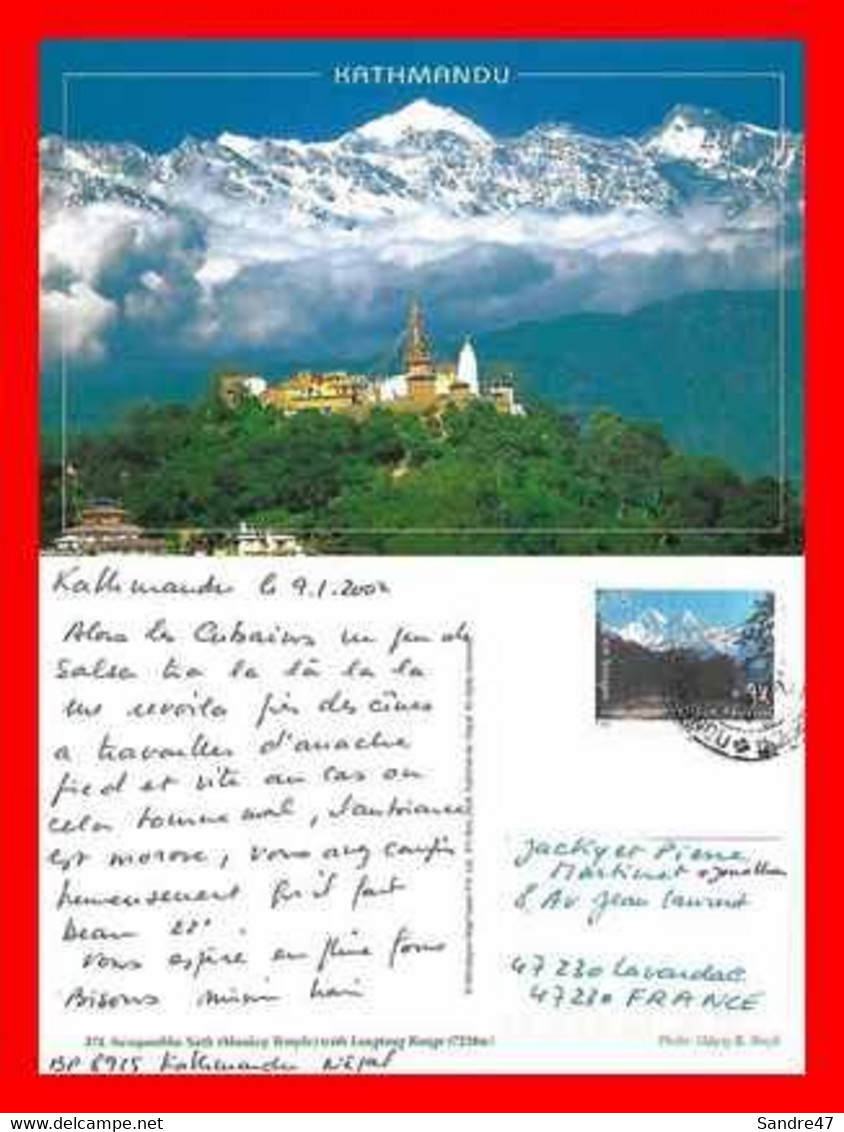 KATHMANDU
Kathmandu le 9.1.2002
Alors les Cubains un peu de
Salsa tra la là la la
me revoila près des cîmes
a travailler d'arrache
pied et vite au cas ou
cela tourne mal, l'ambiance
est morose, vous avez compris
heureusement qu'il fait
beau 22°.
vous espère en pleine forme
Bisous
Jacky et Pierre
Martinet + Jonathan
8 Av Jean Laurent
47230 Lavardac
47230 FRANCE
(Monkey Temple) with Langtang Range (7238m)
Photo:
BP 8915 Kathmandu Népal
www.delcampe.net
Sandre47